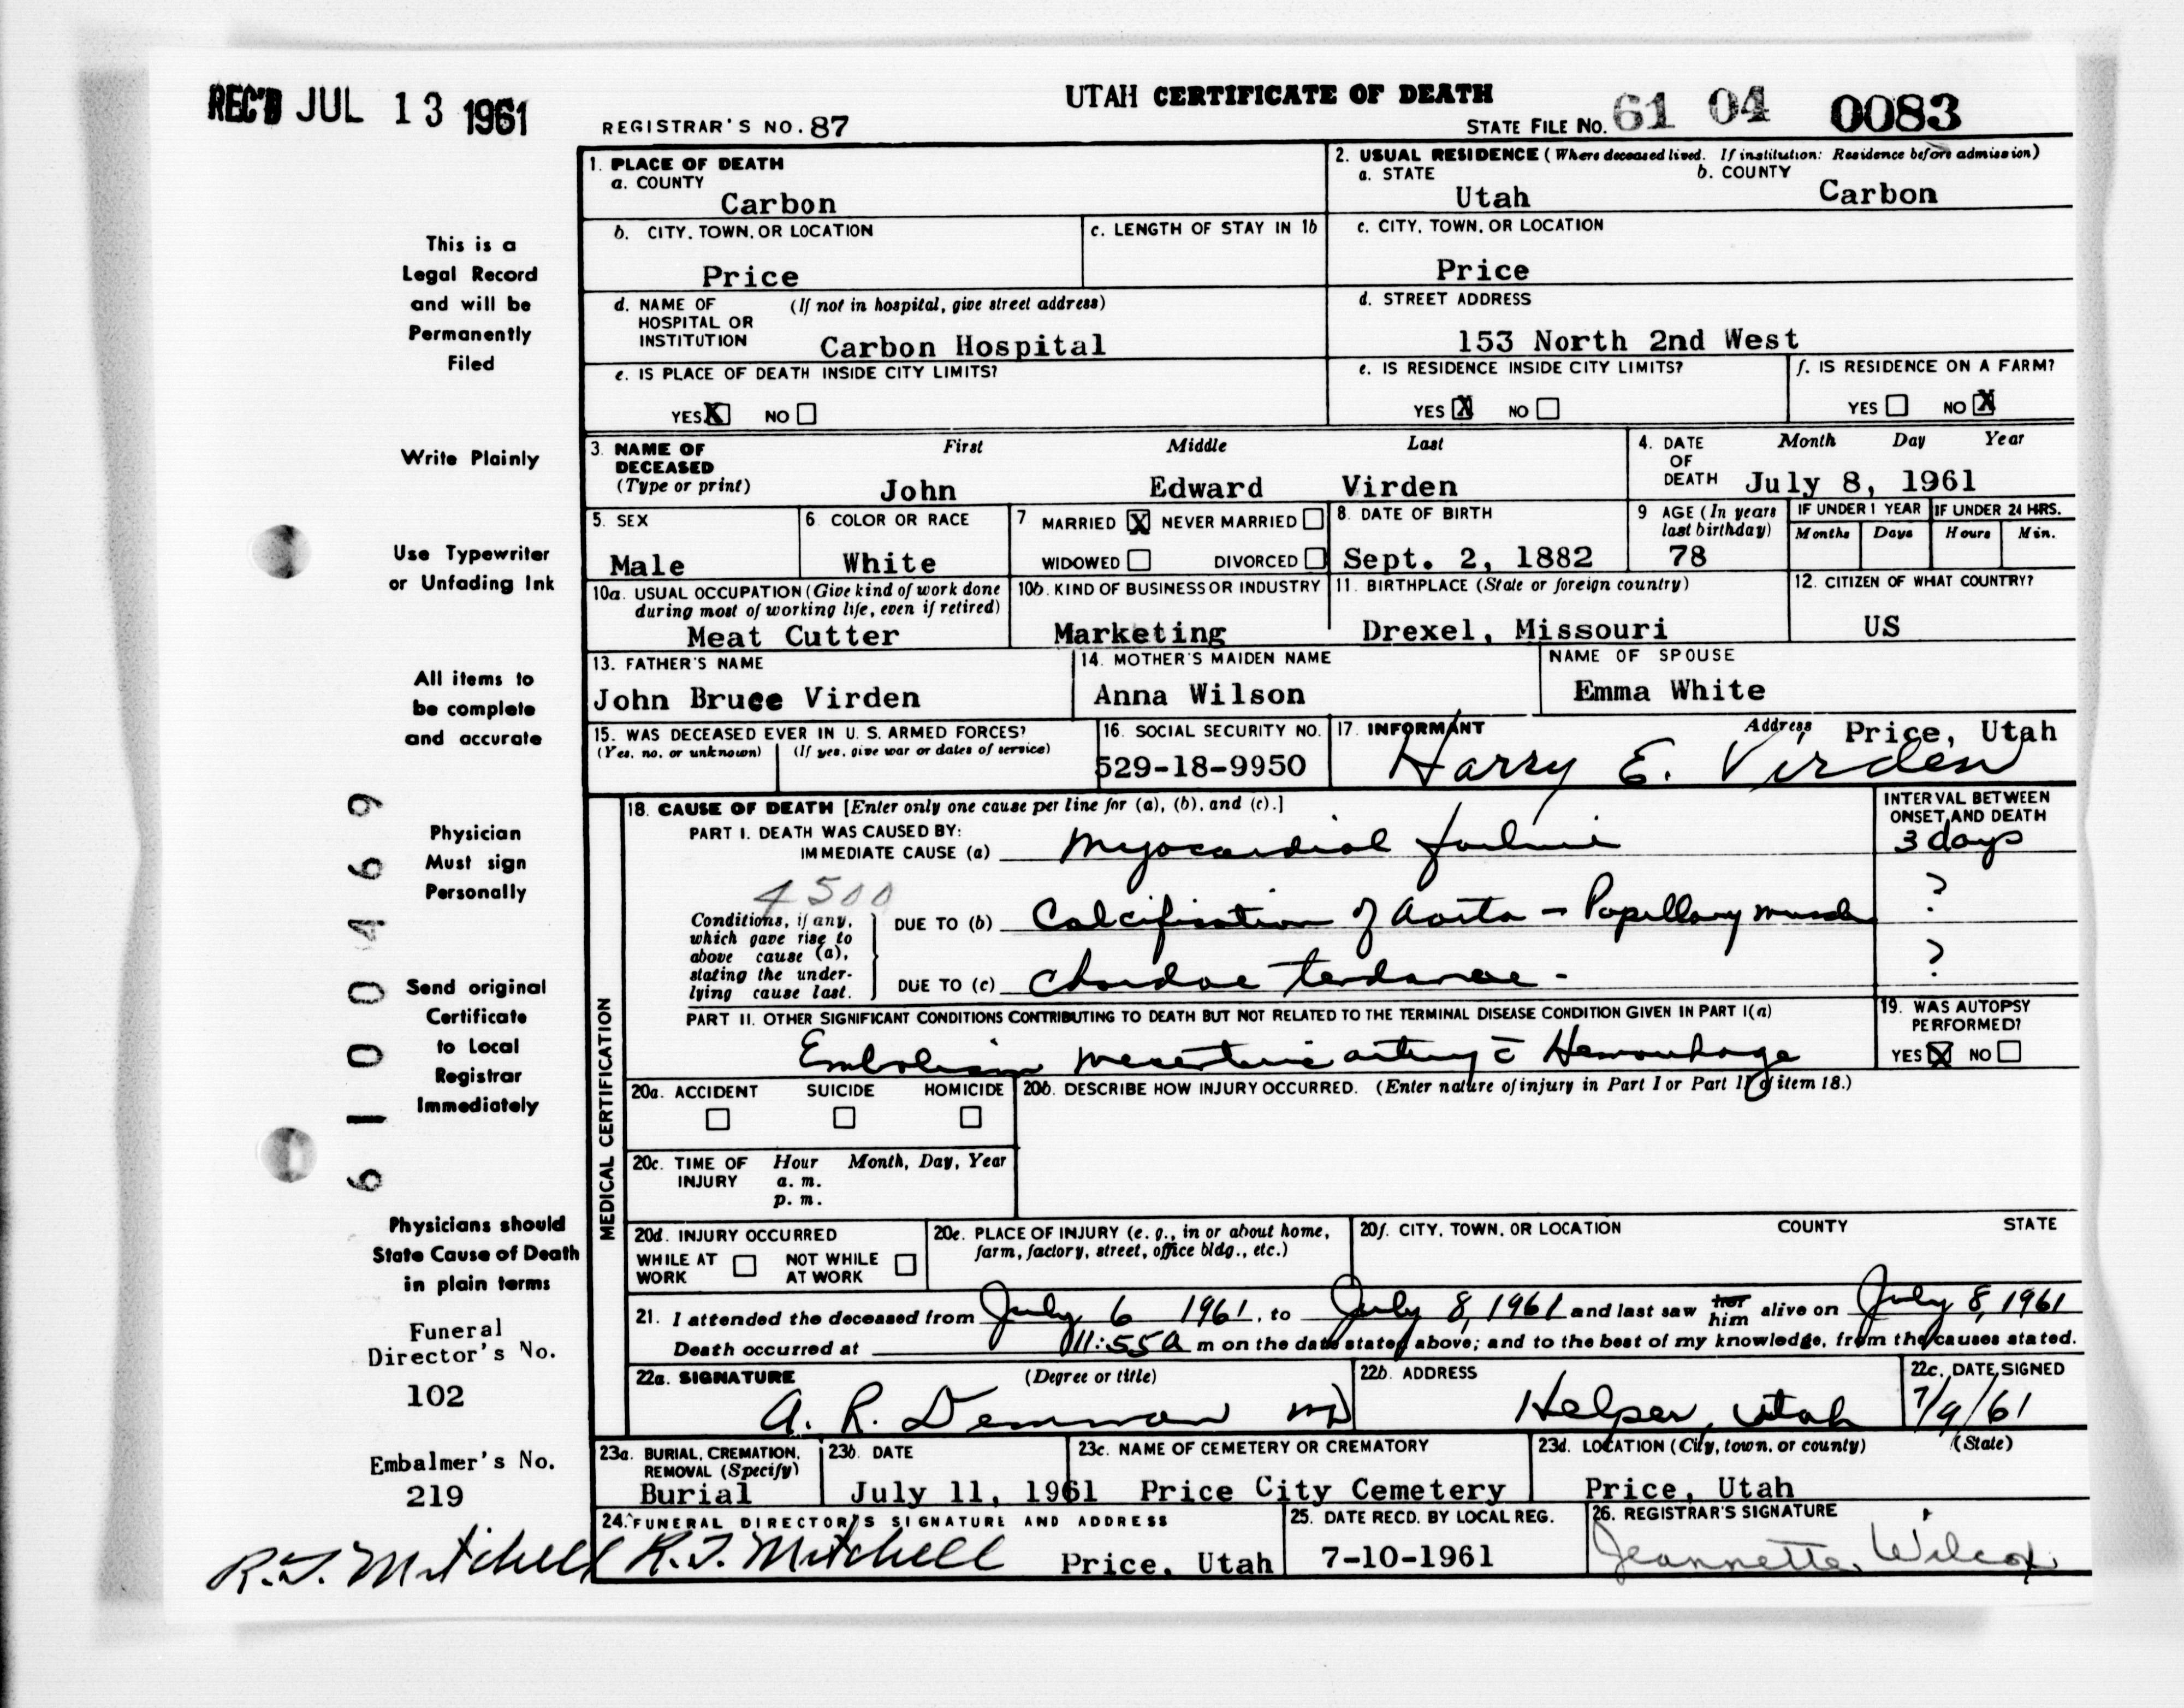 REC'D JUL 13 1961
UTAH CERTIFICATE OF DEATH
REGISTRAR'S NO. 87
STATE FILE NO. 61 04 0083
1. PLACE OF DEATH
a. COUNTY
Carbon
2. USUAL RESIDENCE (Where deceased lived. If institution: Residence before admission)
a. STATE
Utah
b. COUNTY
Carbon
b. CITY, TOWN, OR LOCATION
Price
c. LENGTH OF STAY IN 1b
c. CITY, TOWN, OR LOCATION
Price
d. NAME OF HOSPITAL OR INSTITUTION
(If not in hospital, give street address)
Carbon Hospital
d. STREET ADDRESS
153 North 2nd West
e. IS PLACE OF DEATH INSIDE CITY LIMITS?
YES X NO
e. IS RESIDENCE INSIDE CITY LIMITS?
YES X NO
f. IS RESIDENCE ON A FARM?
YES NO X
3. NAME OF DECEASED
(Type or print)
First Middle Last
John Edward Virden
4. DATE OF DEATH
Month Day Year
July 8, 1961
5. SEX
Male
6. COLOR OR RACE
White
7 MARRIED X NEVER MARRIED
WIDOWED DIVORCED
8. DATE OF BIRTH
Sept. 2, 1882
9 AGE (In years last birthday)
78
IF UNDER 1 YEAR
Months Days
IF UNDER 24 HRS.
Hours Min.
10a. USUAL OCCUPATION (Give kind of work done
during most of working life, even if retired)
Meat Cutter
10b. KIND OF BUSINESS OR INDUSTRY
Marketing
11. BIRTHPLACE (State or foreign country)
Drexel, Missouri
12. CITIZEN OF WHAT COUNTRY?
US
13. FATHER'S NAME
John Bruce Virden
14. MOTHER'S MAIDEN NAME
Anna Wilson
NAME OF SPOUSE
Emma White
15. WAS DECEASED EVER IN U. S. ARMED FORCES?
(Yes, no, or unknown) (If yes, give war or dates of service)
16. SOCIAL SECURITY NO.
529-18-9950
17. INFORMANT
Address Price, Utah
Harry E. Virden
MEDICAL CERTIFICATION
18. CAUSE OF DEATH [Enter only one cause per line for (a), (b), and (c).]
INTERVAL BETWEEN
ONSET AND DEATH
PART I. DEATH WAS CAUSED BY:
IMMEDIATE CAUSE (a) Myocardial failure
3 days
4500
Conditions, if any,
which gave rise to
above cause (a),
stating the under-
lying cause last.
DUE TO (b) Calcification of Aorta - Papillary muscle
?
DUE TO (c) Chordae tendonae -
?
PART II. OTHER SIGNIFICANT CONDITIONS CONTRIBUTING TO DEATH BUT NOT RELATED TO THE TERMINAL DISEASE CONDITION GIVEN IN PART I(a)
Embolism mesenteric artery c̄ Hemorrhage
19. WAS AUTOPSY
PERFORMED?
YES X NO
20a. ACCIDENT SUICIDE HOMICIDE
20b. DESCRIBE HOW INJURY OCCURRED. (Enter nature of injury in Part I or Part II of item 18.)
20c. TIME OF INJURY
Hour Month, Day, Year
a. m.
p. m.
20d. INJURY OCCURRED
WHILE AT WORK NOT WHILE AT WORK
20e. PLACE OF INJURY (e. g., in or about home,
farm, factory, street, office bldg., etc.)
20f. CITY, TOWN, OR LOCATION COUNTY STATE
21. I attended the deceased from July 6 1961, to July 8, 1961 and last saw her him alive on July 8, 1961
Death occurred at 11:55 a m on the date stated above; and to the best of my knowledge, from the causes stated.
22a. SIGNATURE (Degree or title)
A. R. Demman MD
22b. ADDRESS
Helper, Utah
22c. DATE SIGNED
7/9/61
23a. BURIAL, CREMATION,
REMOVAL (Specify)
Burial
23b. DATE
July 11, 1961
23c. NAME OF CEMETERY OR CREMATORY
Price City Cemetery
23d. LOCATION (City, town, or county) (State)
Price, Utah
24. FUNERAL DIRECTOR'S SIGNATURE AND ADDRESS
R. J. Mitchell Price, Utah
25. DATE RECD. BY LOCAL REG.
7-10-1961
26. REGISTRAR'S SIGNATURE
Jeannette Wilcox
This is a
Legal Record
and will be
Permanently
Filed
Write Plainly
Use Typewriter
or Unfading Ink
All items to
be complete
and accurate
Physician
Must sign
Personally
Send original
Certificate
to Local
Registrar
Immediately
Physicians should
State Cause of Death
in plain terms
Funeral
Director's No.
102
Embalmer's No.
219
R. J. Mitchell
6100469